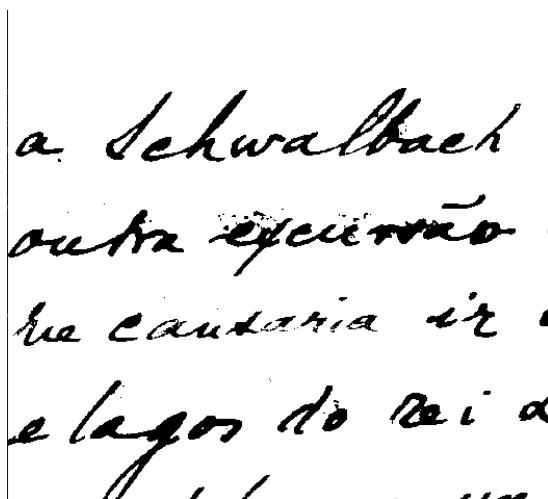 a Schwalbach
outra excursão
me causaria ir
e lagos do rei